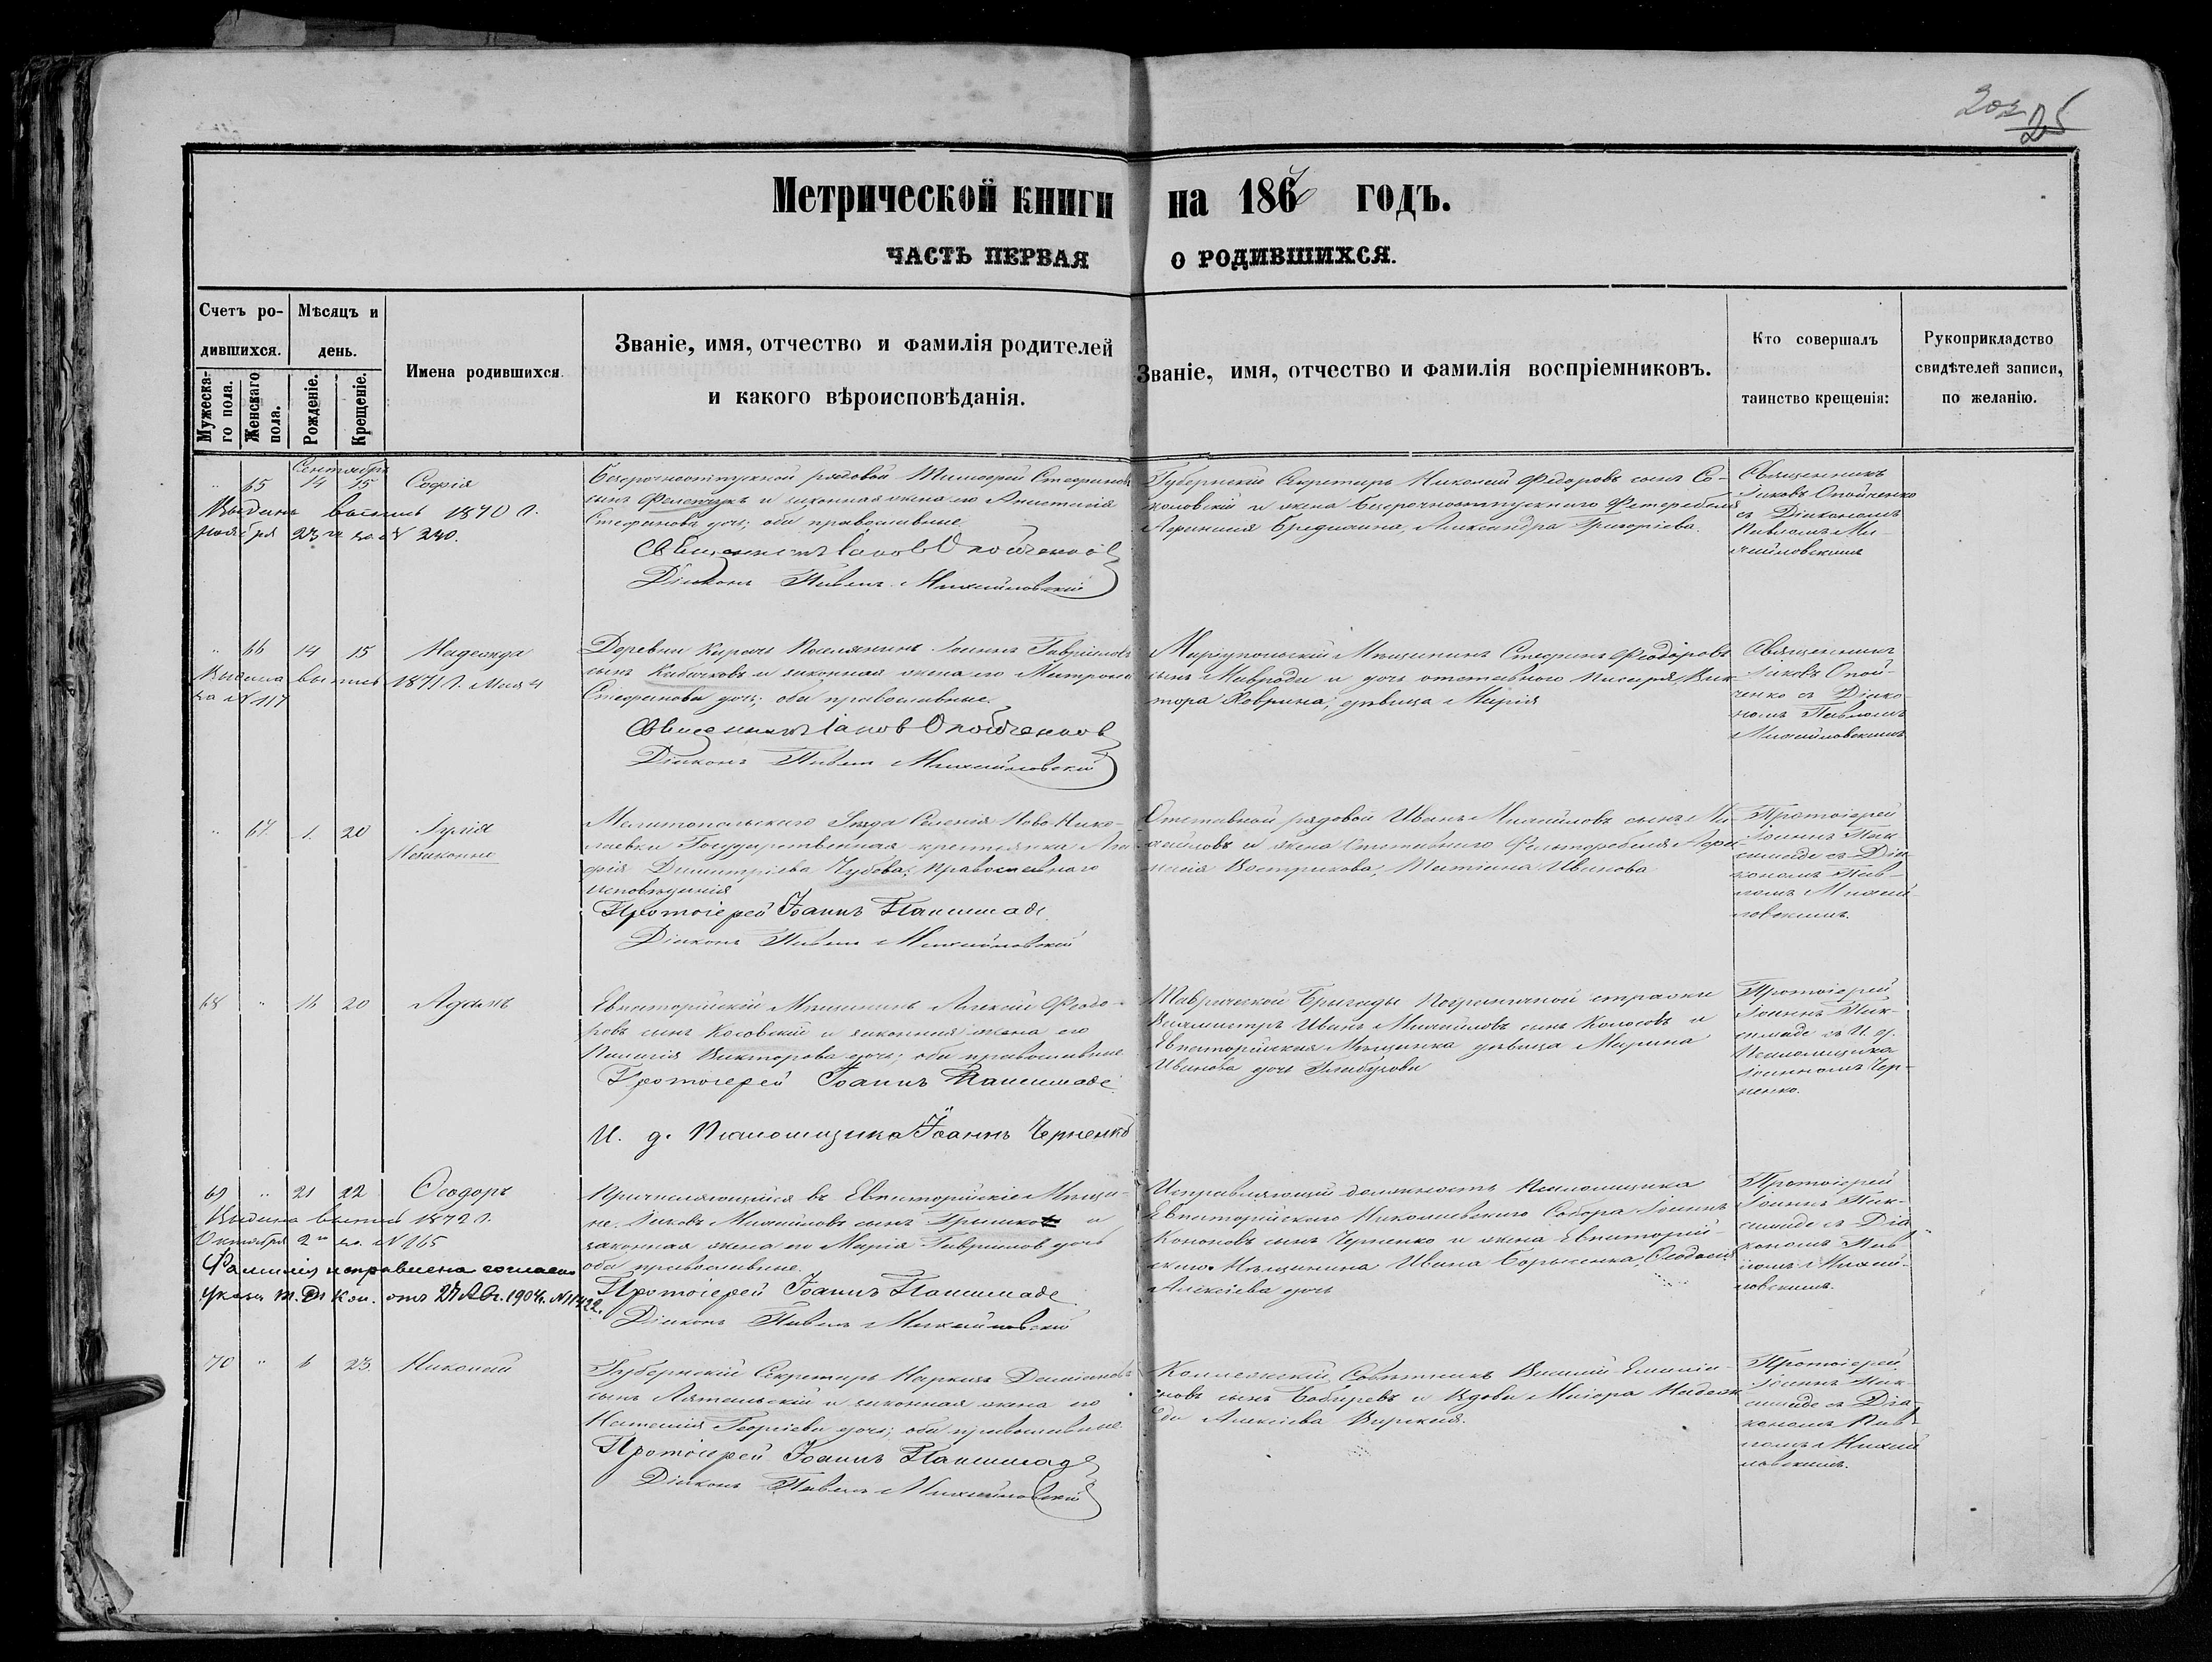 202
25
Метрической книги на 1870 годъ.
ЧАСТЬ ПЕРВАЯ О РОДИВШИХСЯ.
Счетъ ро-
дившихся.
Мужеска-
го пола.
Женскаго
пола.
Мѣсяцъ и
день.
Рожденіе.
Крещеніе.
Имена родившихся.
Званіе, имя, отчество и фамилія родителей
и какого вѣроисповѣданія.
Званіе, имя, отчество и фамилія воспріемниковъ.
Кто совершалъ
таинство крещенія:
Рукоприкладство
свидѣтелей записи,
по желанію.
Сентябрь
65 14 15 София
Выданъ выпись 1870 г.
ноября 23 за № 230.
Безсрочноотпускной рядовой Тимофей Стефановъ
сынъ и законная жена его Анастасія
Стефанова дочь; оба православные
Священникъ Іаковъ Опойченковъ
Діаконъ Павелъ Михайловскій
Губернскій Секретарь Николай Федоровъ сынъ Со-
коловскій и жена Безсрочноотпускнаго Фельдфебеля
Александра Григоріева.
Священникъ
Іаковъ Опойченко
съ Діакономъ
Павломъ Ми-
хайловскимъ
66 14 15 Надежда
Выдана выпись 1871 г. Мая 4
за № 117
Деревни Поселянинъ Іоаннъ Гавріиловъ
сынъ Кабачковъ и законная жена его Матрона
Стефанова дочь; оба православные.
Священникъ Іаковъ Опойченковъ
Діаконъ Павелъ Михайловскій
Маріупольскій Мѣщанинъ Стефанъ Феодоровъ
сынъ Мавроди и дочь отставнаго писаря Вик-
тора Ховрина, дѣвица Марія
Священникъ
Іаковъ Опой-
ченко съ Діако-
номъ Павломъ
Михайловскимъ
67 1 20 Іулія
Незаконно
Мелитопольскаго Уѣзда Селенія Ново Нико-
лаевки Государственная крестьянка Ага-
фія Димитріева Чубова; православнаго
исповѣданія
Протоіерей Іоаннъ Пакшмаде
Діаконъ Павелъ Михайловскій
Отставной рядовой Иванъ Михайловъ сынъ Ми-
хайловъ и жена Отставнаго Фельдфебеля
Вострикова, Татіана Иванова
Протоіерей
Іоаннъ Пак-
шмаде съ Діа-
кономъ Пав-
ломъ Михай-
ловскимъ.
68 16 20 Адамъ
Евпаторійскій Мѣщанинъ Алексій Феодо-
ровъ сынъ Косовскій и законная жена его
Пелагія Викторова дочь; оба православные
Протоіерей Іоаннъ Пакшмаде
И. д. Псаломщика Іоаннъ Черненко
Таврической Бригады Пограничной стражи
Вахмистръ Иванъ Михайловъ сынъ Колосовъ и
Евпаторійская Мѣщанка дѣвица Марина
Иванова дочь
Протоіерей
Іоаннъ Пак-
шмаде съ И. д.
Псаломщика
Іоанномъ Чер-
ненко.
69 21 22 Ѳеодоръ
Выдана выпись 1872 г.
Октября 2 за № 165
Фамилія исправлена согласно
указа Т. Д. Кон. отъ 27 Авг. 1904 г. № 11422.
Причисляющійся въ Евпаторійскіе Мѣща-
не Іаковъ Михайловъ сынъ Гришко и
законная жена его Марія Гавріилова дочь
оба православные.
Протоіерей Іоаннъ Пакшмаде
Діаконъ Павелъ Михайловскій
Исправляющій должность Псаломщика
Евпаторійскаго Николаевскаго Собора Іоаннъ
Кононовъ сынъ Черненко и жена Евпаторій-
скаго Мѣщанина Ивана Борисенка, Ѳеодосія
Алексіева дочь
Протоіерей
Іоаннъ Пак-
шмаде съ Діа-
кономъ Пав-
ломъ Михай-
ловскимъ.
70 6 23 Николай
Губернскій Секретарь Наркизъ Даміановъ
сынъ Лятельскій и законная жена его
Наталія Георгіева дочь; оба православные
Протоіерей Іоаннъ Пакшмаде
Діаконъ Павелъ Михайловскій
Коллежскій Совѣтникъ Василій Емилиа-
новъ сынъ Бобыревъ и Вдова Маіора Надеж-
да Алексіева
Протоіерей
Іоаннъ Пак-
шмаде съ Діа-
кономъ Пав-
ломъ Михай-
ловскимъ.